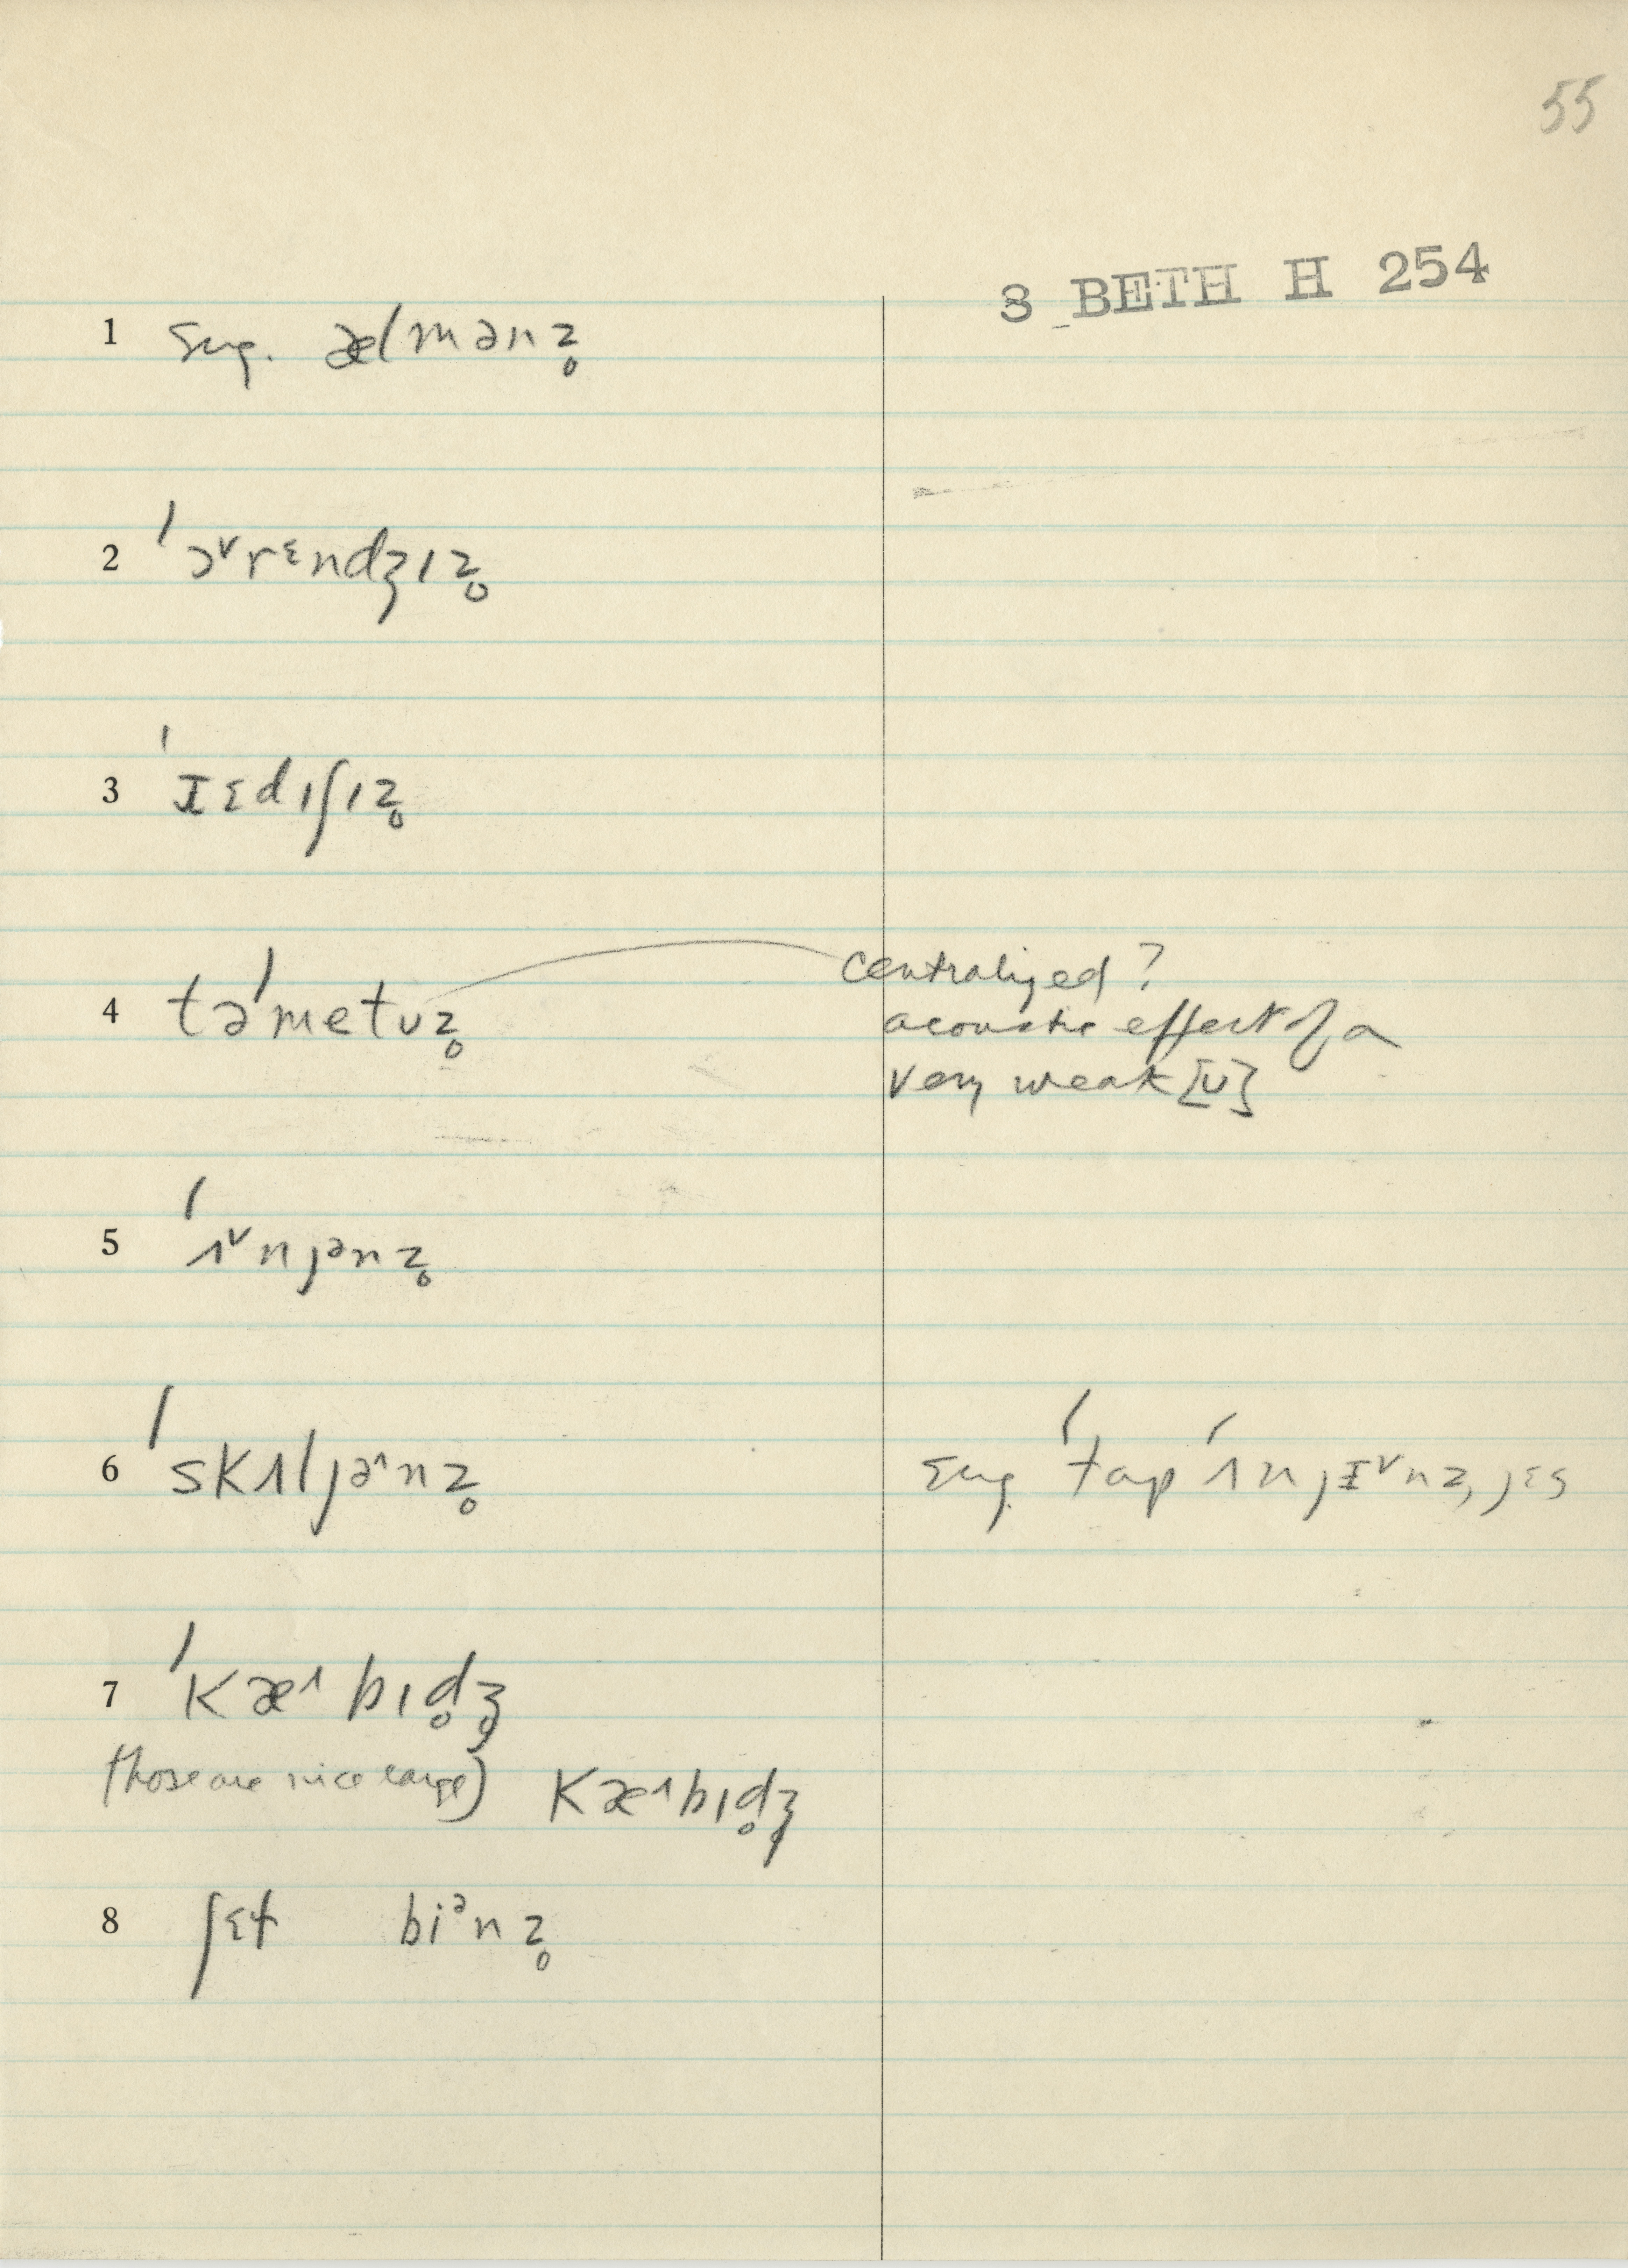 55
8 BETH H 254
1 sug. ælmənz̥
2 ˈɔˇrɛndʒɪz̥
3 ˈɪɛdɪʃɪz̥
4 təˈmetʊz̥
centralized?
acoustic effect of a
very weak [ʊ]
5 ˈʌˇnjənz̥
6 ˈskʌljə^nz̥
sug. ˈtɑp ˈʌnjɪˇnz, jɛs
7 ˈkæ^bɪd̥ʒ̥
(those are nice large) kæ^bɪd̥ʒ
8 ʃɛt biᵊnz̥